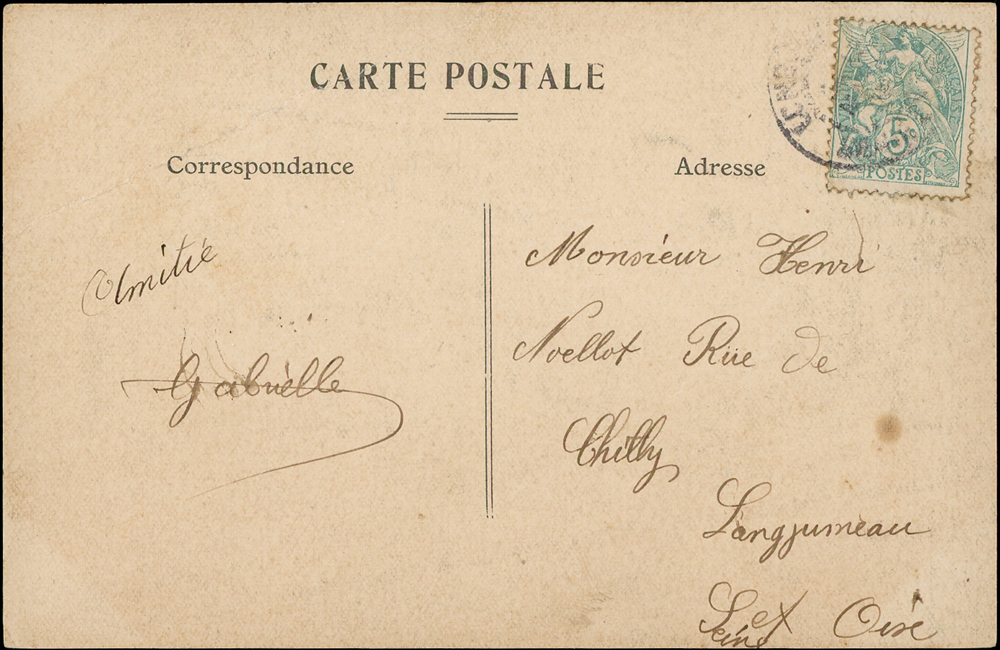 CARTE POSTALE
Correspondance
Adresse
5c
POSTES
Amitié
Gabrielle
Monsieur Henri
Noellot Rue de
Chilly
Langjumeau
Seine et Oise